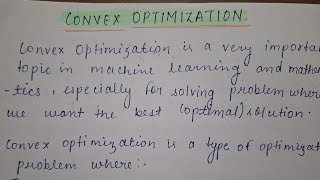 CONVEX OPTIMIZATION.
Convex Optimization is a very importan
topic in machine learning and mathe
-tics, especially for solving problem where
we want the best (optimal) solution.
Convex optimization is a type of optimizat
problem where:-